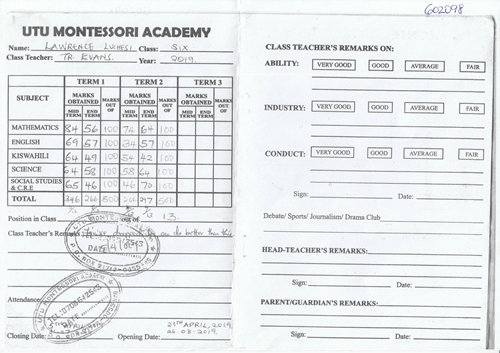 602098
UTU MONTESSORI ACADEMY
Name: LAWRENCE LUCHESI Class: SIX
Class Teacher: TR EVANS. Year: 2019.
TERM 1 TERM 2 TERM 3
SUBJECT MARKS OBTAINED MARKS OUT OF MARKS OBTAINED MARKS OUT OF MARKS OBTAINED MARKS OUT OF
MID TERM END TERM MID TERM END TERM MID TERM END TERM
MATHEMATICS 84 56 100 74 64 100
ENGLISH 69 57 100 34 57 100
KISWAHILI 64 49 100 54 42 100
SCIENCE 64 58 100 58 64 100
SOCIAL STUDIES & C.R.E 65 46 100 46 70 100
TOTAL 346 266 500 266 297 500
Position in Class out of 13.
Class Teacher's Remarks can do better than this
DATE
Attendance:
UTU MONTESSORI ACADEMY
DATE
Closing Date: Opening Date: 29TH APRIL, 2019
26.08.2019.
CLASS TEACHER'S REMARKS ON:
ABILITY: VERY GOOD GOOD AVERAGE FAIR
INDUSTRY: VERY GOOD GOOD AVERAGE FAIR
CONDUCT: VERY GOOD GOOD AVERAGE FAIR
Sign: Date:
Debate/ Sports/ Journalism/ Drama Club
HEAD-TEACHER'S REMARKS:
Sign: Date:
PARENT/GUARDIAN'S REMARKS:
Sign: Date: